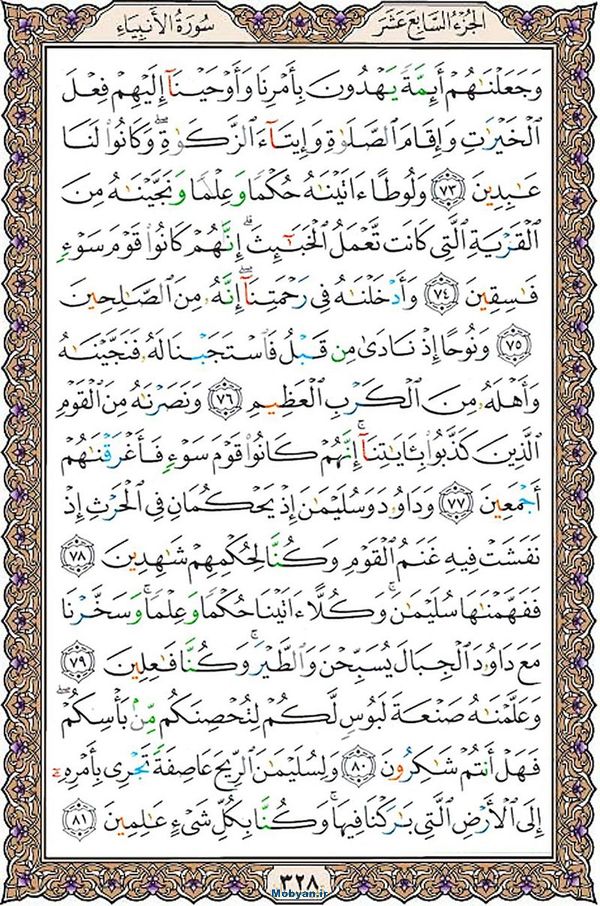 الجُزءُ السَّابِعَ عَشَرَ
سُورَةُ الأَنبِيَاءِ
وَجَعَلْنَٰهُمْ أَئِمَّةً يَهْدُونَ بِأَمْرِنَا وَأَوْحَيْنَآ إِلَيْهِمْ فِعْلَ
ٱلْخَيْرَٰتِ وَإِقَامَ ٱلصَّلَوٰةِ وَإِيتَآءَ ٱلزَّكَوٰةِ ۖ وَكَانُوا۟ لَنَا
عَٰبِدِينَ ﴿٧٣﴾ وَلُوطًا ءَاتَيْنَٰهُ حُكْمًا وَعِلْمًا وَنَجَّيْنَٰهُ مِنَ
ٱلْقَرْيَةِ ٱلَّتِى كَانَت تَّعْمَلُ ٱلْخَبَٰٓئِثَ ۗ إِنَّهُمْ كَانُوا۟ قَوْمَ سَوْءٍ
فَٰسِقِينَ ﴿٧٤﴾ وَأَدْخَلْنَٰهُ فِى رَحْمَتِنَآ ۖ إِنَّهُۥ مِنَ ٱلصَّٰلِحِينَ
﴿٧٥﴾ وَنُوحًا إِذْ نَادَىٰ مِن قَبْلُ فَٱسْتَجَبْنَا لَهُۥ فَنَجَّيْنَٰهُ
وَأَهْلَهُۥ مِنَ ٱلْكَرْبِ ٱلْعَظِيمِ ﴿٧٦﴾ وَنَصَرْنَٰهُ مِنَ ٱلْقَوْمِ
ٱلَّذِينَ كَذَّبُوا۟ بِـَٔايَٰتِنَآ ۚ إِنَّهُمْ كَانُوا۟ قَوْمَ سَوْءٍ فَأَغْرَقْنَٰهُمْ
أَجْمَعِينَ ﴿٧٧﴾ وَدَاوُۥدَ وَسُلَيْمَٰنَ إِذْ يَحْكُمَانِ فِى ٱلْحَرْثِ إِذْ
نَفَشَتْ فِيهِ غَنَمُ ٱلْقَوْمِ وَكُنَّا لِحُكْمِهِمْ شَٰهِدِينَ ﴿٧٨﴾
فَفَهَّمْنَٰهَا سُلَيْمَٰنَ ۚ وَكُلًّا ءَاتَيْنَا حُكْمًا وَعِلْمًا ۚ وَسَخَّرْنَا
مَعَ دَاوُۥدَ ٱلْجِبَالَ يُسَبِّحْنَ وَٱلطَّيْرَ ۚ وَكُنَّا فَٰعِلِينَ ﴿٧٩﴾
وَعَلَّمْنَٰهُ صَنْعَةَ لَبُوسٍ لَّكُمْ لِتُحْصِنَكُم مِّنۢ بَأْسِكُمْ ۖ
فَهَلْ أَنتُمْ شَٰكِرُونَ ﴿٨٠﴾ وَلِسُلَيْمَٰنَ ٱلرِّيحَ عَاصِفَةً تَجْرِى بِأَمْرِهِۦٓ
إِلَى ٱلْأَرْضِ ٱلَّتِى بَٰرَكْنَا فِيهَا ۚ وَكُنَّا بِكُلِّ شَىْءٍ عَٰلِمِينَ ﴿٨١﴾
٣٢٨
Mobyan.ir